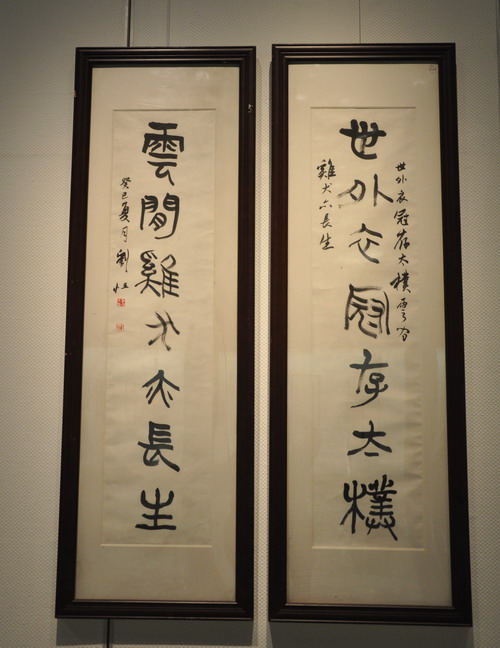 世外衣冠存太樸雲間
世外衣冠存太樸
雞犬亦長生
雲閒雞犬亦長生
癸巳夏月劉恆